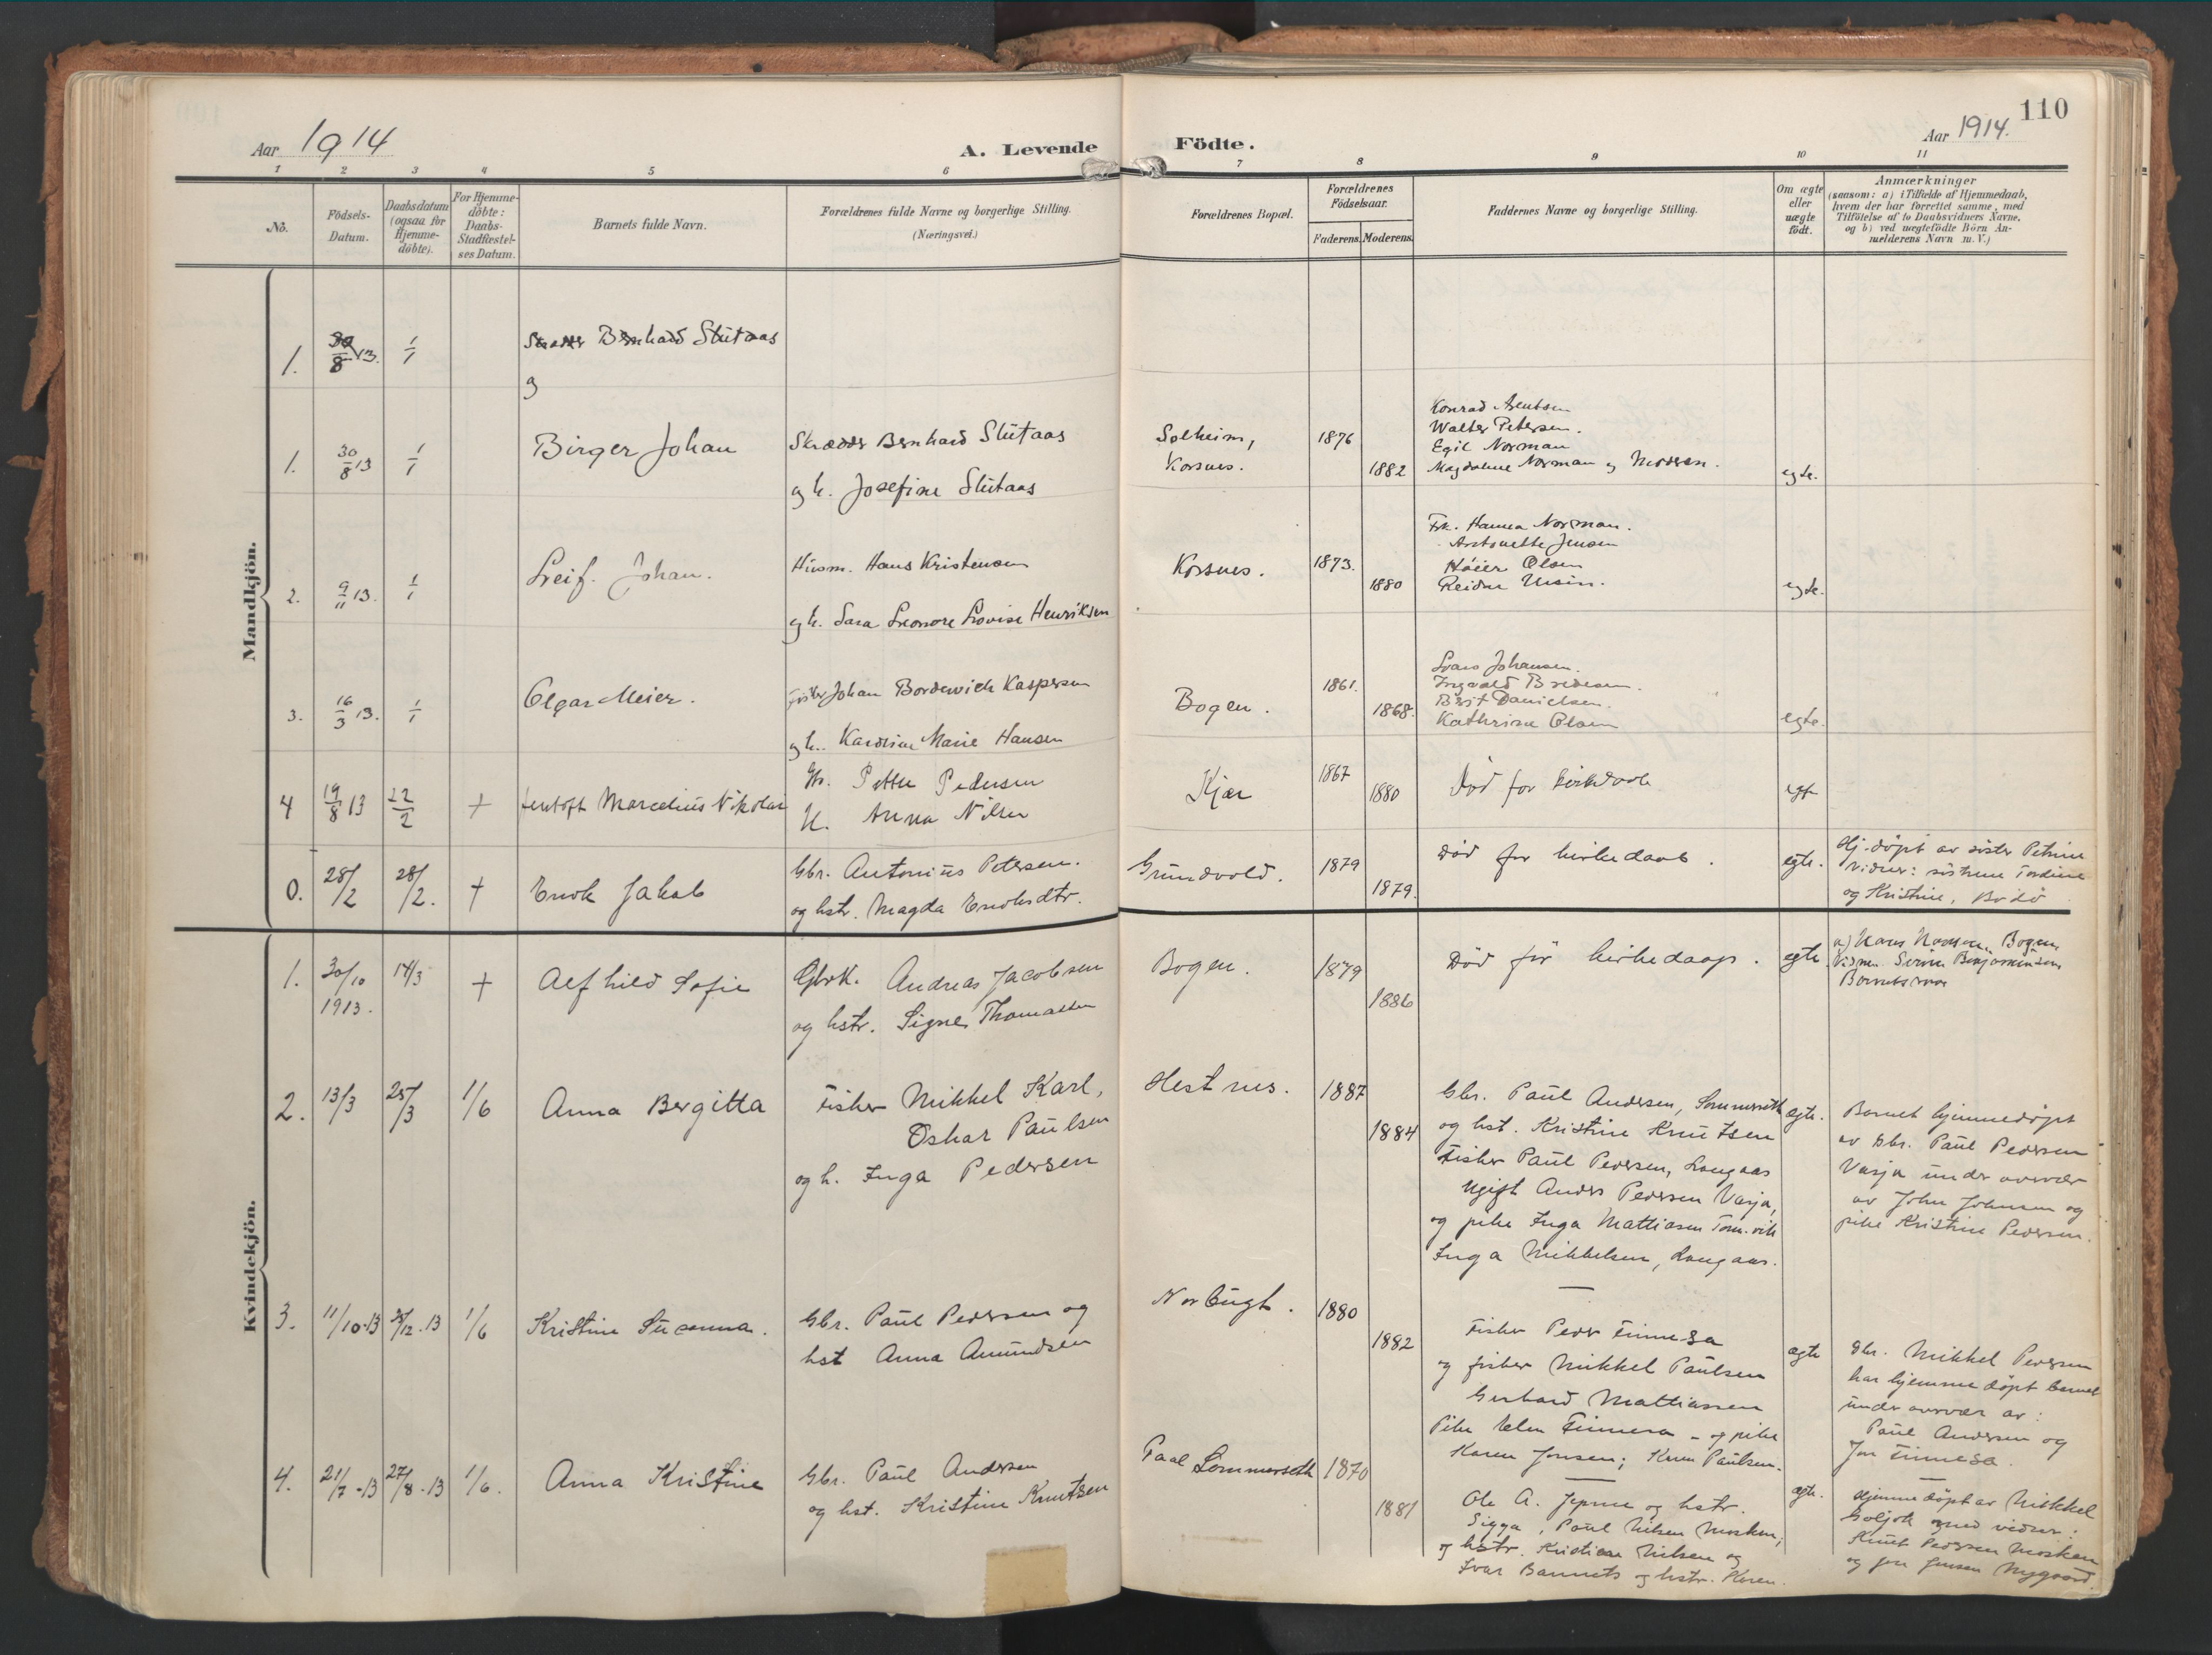 110
Aar 1914
A. Levende
Födte.
Aar 1914.
1 2 3 4 5 6 7 8 9 10 11
Nö.
Födsels-
Datum.
Daabsdatum
(ogsaa for
Hjemme-
döbte).
For Hjemme-
döbte:
Daabs-
Stadfæstel-
ses Datum.
Barnets fulde Navn.
Forældrenes fulde Navne og borgerlige Stilling.
(Næringsvei.)
Forældrenes Bopæl.
Forældrenes
Födselsaar.
Faderens. Moderens.
Faddernes Navne og borgerlige Stilling.
Om ægte
eller
uægte
födt.
Anmærkninger
(saasom: a) i Tilfælde af Hjemmedaab,
hvem der har forrettet samme, med
Tilföielse af to Daabsvidners Navne.
og b) ved uægtefödte Börn An-
melderens Navn m. V.)
Mandkjön.
1. 30/8 13. 1/1 Bernhard Slutaas
og
1. 30/8 13 1/1 Birger Johan
Skrædder Bernhard Slutaas
og h. Josefine Slutaas
Solheim,
Korsnes.
1876
1882
Konrad Arentsen
Walter Petersen.
Egil Norman
Magdalene Norman og Moderen.
egte.
2. 9/11 13. 1/1 Leif. Johan.
Husm. Hans Kristensen
og h. Sara Leonore Lovise Henriksen
Korsnes.
1873.
1880
Frk. Hanna Norman.
Antonette Jensen
Höier Olsen
Reidar
egte.
3. 16/3 13. 1/1 Olgar Meier.
Fisker Johan Bordewich Kaspersen
og h. Karoline Marie Hansen
Bogen.
1861.
1868.
Johansen.
Ingvald Bredesen.
Berit Danielsen.
Kathrine Olsen
egte.
4 19/8 13 22/2 + Marcelius Nikolai
Gbr. Petter Pedersen
H. Anna Nilsen
Kjær
1867
1880
Död for kirkedaab
egte
0. 28/2 28/2. + Enok Jakob
Gbr. Antonius Petersen.
og hstr. Magda Enoksdtr.
Grundvold.
1879
1879.
Död for kirkedaab.
egte.
Hj. döpt av söster Petrine
Vidner: söstrene Tordine
og Kristine, Bodö
Kvindekjön.
1. 30/10 1913. 14/3 + Alfhild Sofie
Gbrk. Andreas Jacobsen
og hstr. Signe Thomassen
Bogen.
1879
1886
Död för kirkedaap.
egte
a) Hans Hansen, Bogen,
Vidner Benjaminsen,
Barnets mor
2. 13/3 25/3 1/6 Anna Bergitta
Fisker Mikkel Karl,
Oskar Paulsen
og h. Inga Pedersen
Hestnes.
1887
1884
Gbr. Paul Andersen, Sommerseth
og hst. Kristine Knutsen
Fisker Paul Pedersen, Langaas
Ugift Anders Pedersen Vasja,
og pike Inga Mattiasen Tom.vik
Inga Mikkelsen, Langaas.
ægte.
Barnet hjemmedøpt
av Gbr. Paul Pedersen
Vasja under overvær
av John Johnsen og
pike Kristine Pedersen.
3. 11/10-13 25/12.13 1/6 Kristine Susanna.
Gbr. Paul Pedersen og
hst Anna Amundsen
Norbugt.
1880
1882
Fisker Peder Finnesa
og fisker Mikkel Paulsen
Gerhard Mattiassen
Pike Elen Finnesa - og pike
Karen Jonsen; Karen Paulsen.
ægte
Gbr. Mikkel Pedersen
har hjemmedøpt barnet
under overvær av:
Paul Andersen og
Jon Finnesa.
4. 21/7-13 27/8.13 1/6. Anna Kristine
Gbr. Paul Andersen
og hst. Kristine Knutsen
Paal Sommerseth
1870
1881
Ole A. Jepsne og hstr.
Sigga, Paul Nilsen Mosken;
og hstr. Kristiane Nilsen og
Ivar Bannets og hstr. Karen.
ægte.
Hjemmedøpt av Mikkel
Goljok med vidner:
Knut Pedersen Mosken
og Jon Jensen Nygaard